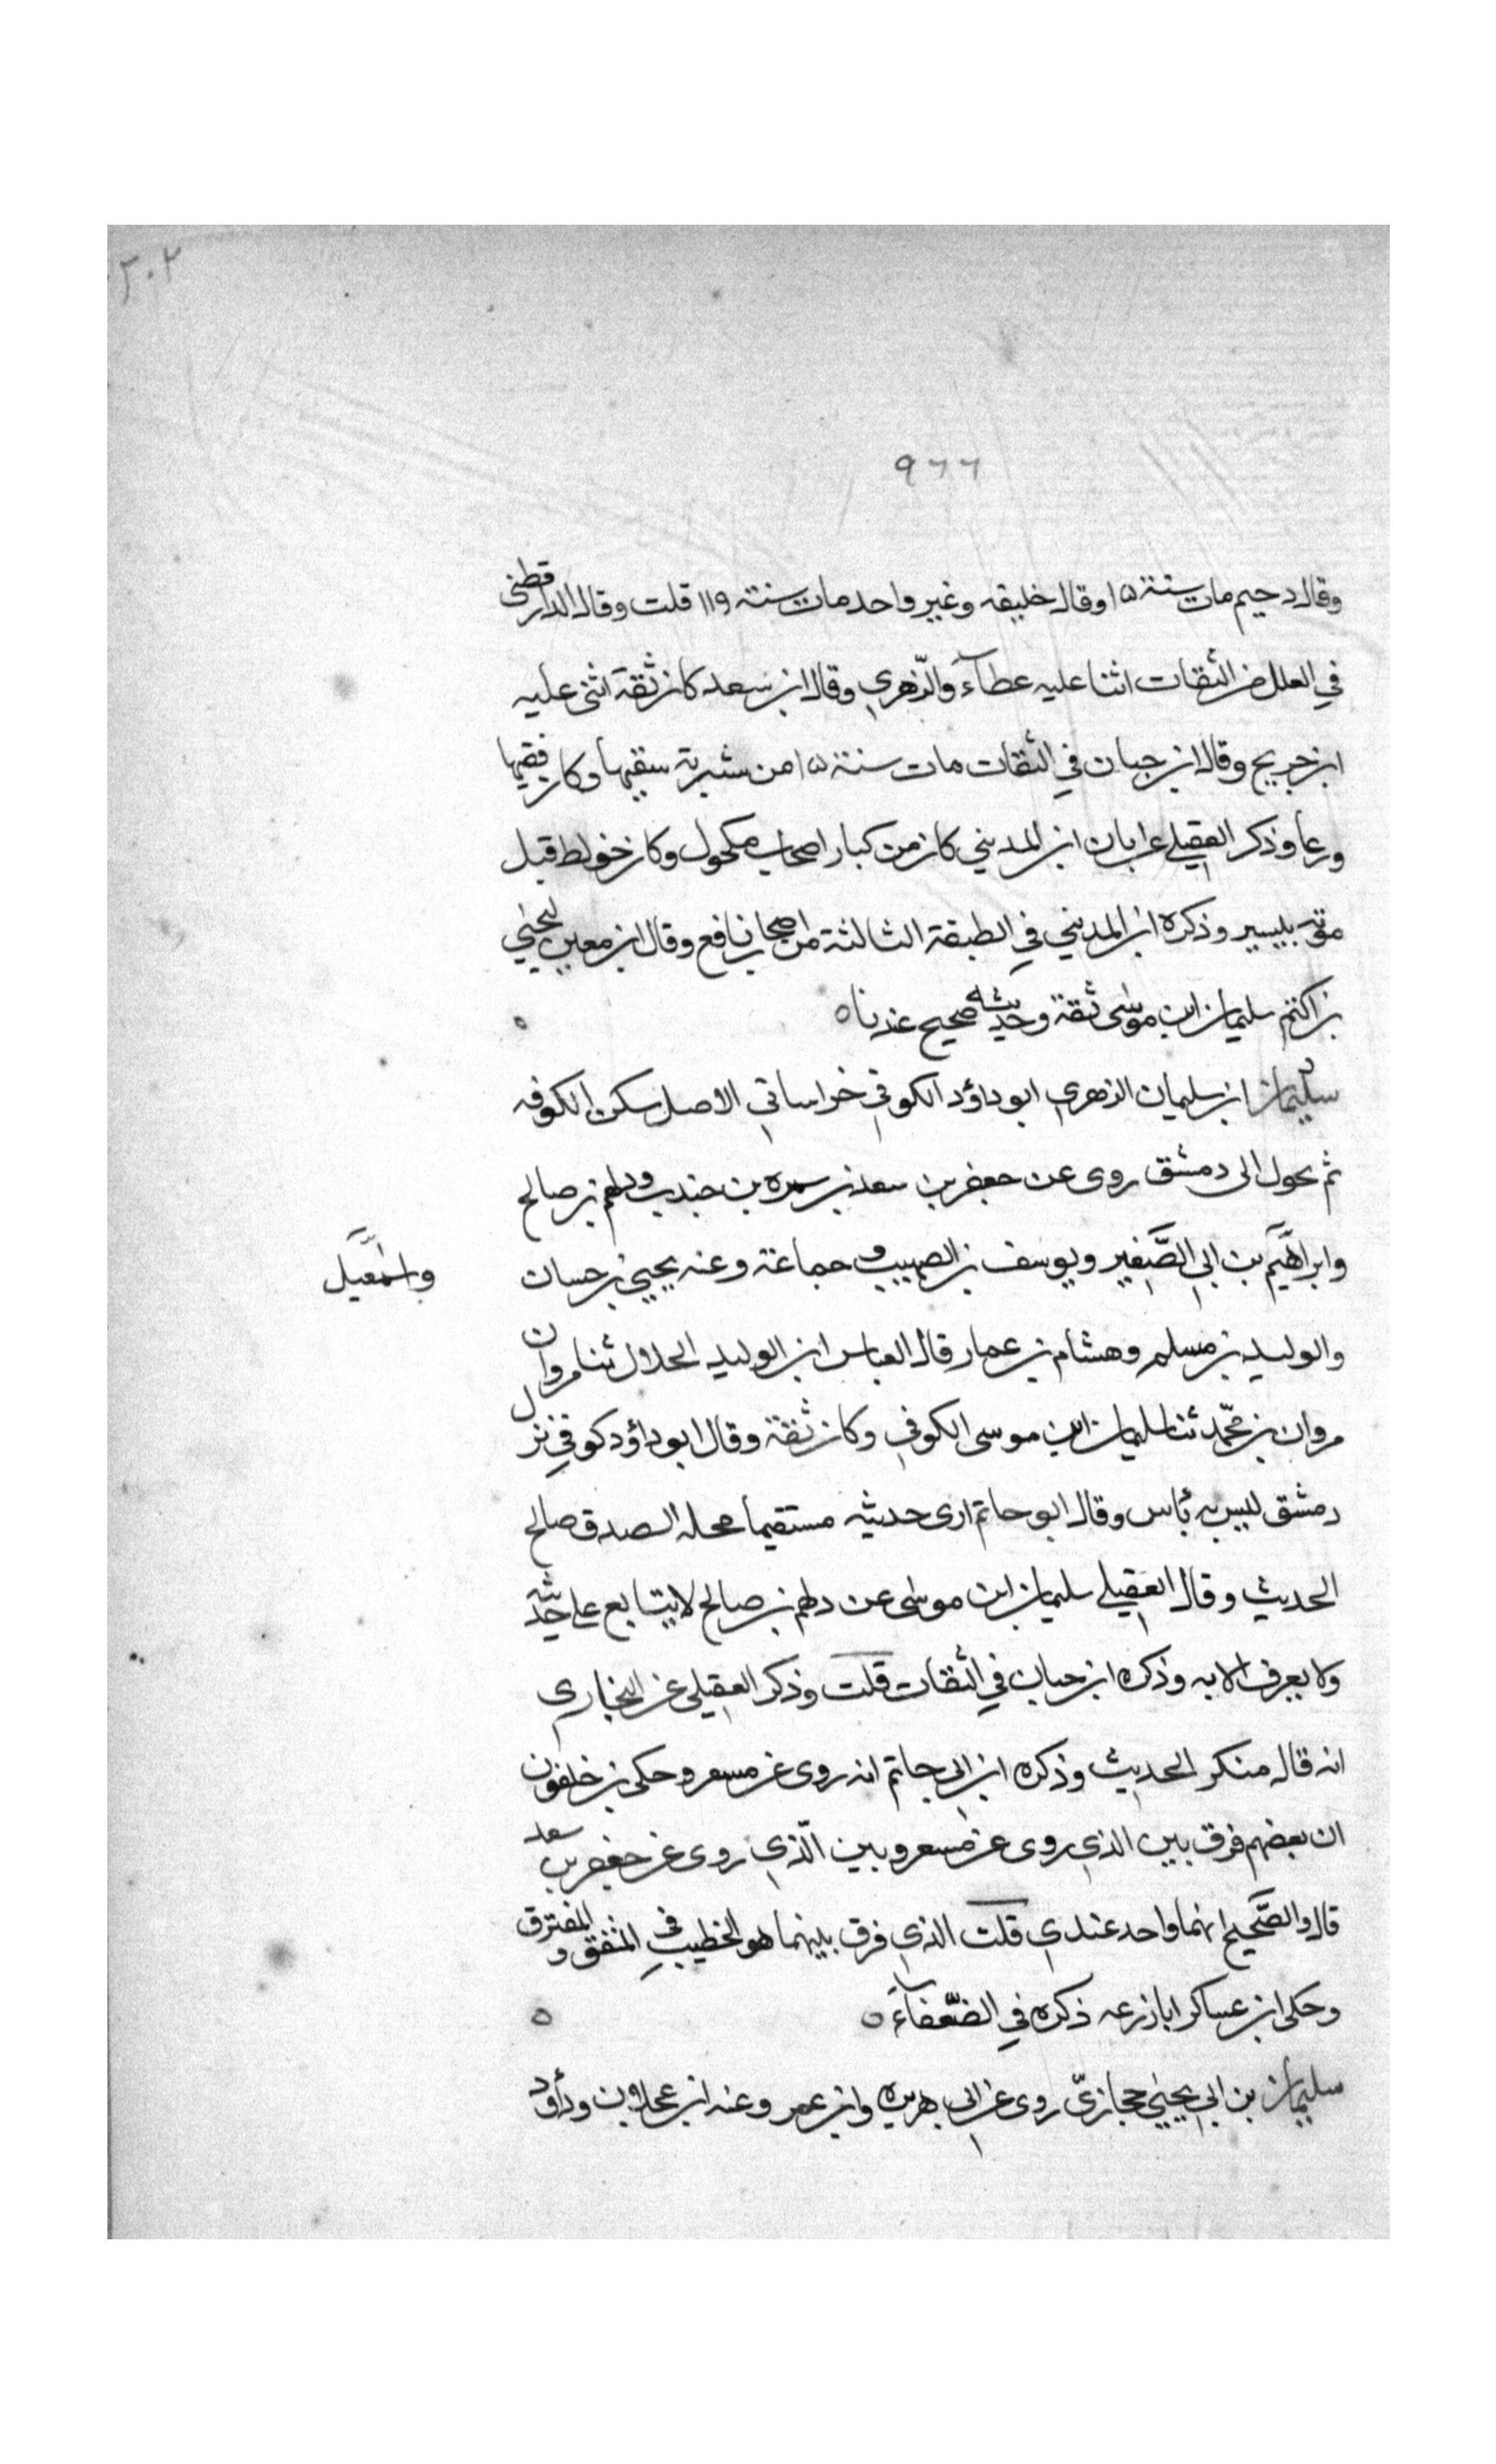 ٢٠٢
٩٦٦
وقال دحيم مات سنة ١٥ وقال خليفه وغير واحد مات سنته ١١٩ قلت وقال الدارقطنى
في العلل من الثقات اثنا عليه عطآء والزّهري وقال ابن سعد كان ثقة اثنى عليه
ابن جريج وقال ابن حبان في الثقات مات سنة ١٥ من شربة سقيها وكان فقيها
ورعاً وذكر العقيلي عن ابان ابن المديني كان من كبار اصحاب مكحول وكان خولط قبل
موته بيسير وذكره ابن المديني في الطبقة الثالثة من اصحاب نافع وقال ابن معين ليحيى
بن اكثم سليمان ابن موسى ثقة وحديثه صحيح عندنا ه
سليمان ابن سليمان الزهري ابو داؤد الكوفي خراساني الاصل سكن الكوفه
ثم تحول الى دمشق روى عن جعفر بن سعد بن سمره بن جندب ودلهم بن صالح
وابراهيم بن ابي الصّغير ويوسف بن الصهيب و جماعة وعنه يحيى بن حسان
واسمعيل
والوليد بن مسلم وهشام بن عمار قال العباس ابن الوليد الحلال ثنا مروان
مروان بن محمّد ثنا سليمان ابن موسى الكوفي وكان ثقة وقال ابو داؤد كوفي نزل
دمشق ليس به بأس وقال ابو حاتم ارى حديثه مستقيما محله الصدق صالح
الحديث وقال العقيلي سليمان ابن موسى عن دلهم بن صالح لا يتابع على حديثه
ولا يعرف الا به وذكره ابن حبان في الثقات قلت وذكر العقيلي عن البخاري
انه قال منكر الحديث وذكره ابن ابي حاتم انه روى عن مسعر وحكى بن خلفون
ان بعضهم فرق بين الذي روى عن مسعر وبين الّذي روى عن جعفر بن سعد
قال والصّحيح انهما واحد عندي قلت الذي فرق بينهما هو الخطيب في المتفق و المفترق
وحكى ابن عساكر ابا زرعه ذكره في الضّعفآء ه
سليمان بن ابي يحيى حجازيّ روى عن ابي هريره وابن عمر وعنه ابن عجلان وداؤد